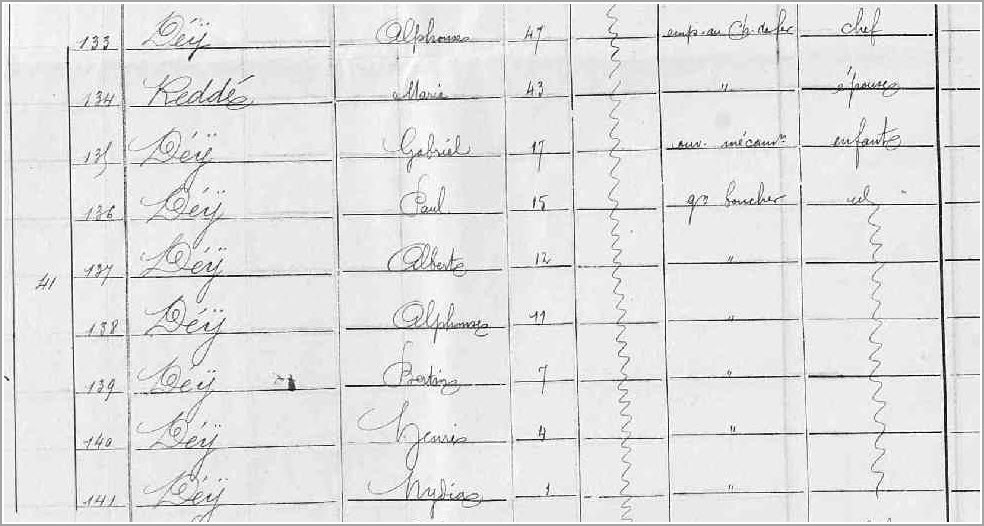 133 Déÿ Alphonse 47 emp. au Ch. de fer chef
134 Reddé Marie 43 " épouse
135 Déÿ Gabriel 17 ouv. mécan. enfant
136 Déÿ Paul 15 boucher id
41 137 Déÿ Albert 12 "
138 Déÿ Alphonse 11 "
139 Déÿ 7 "
140 Déÿ Henri 4 "
141 Déÿ 1 "